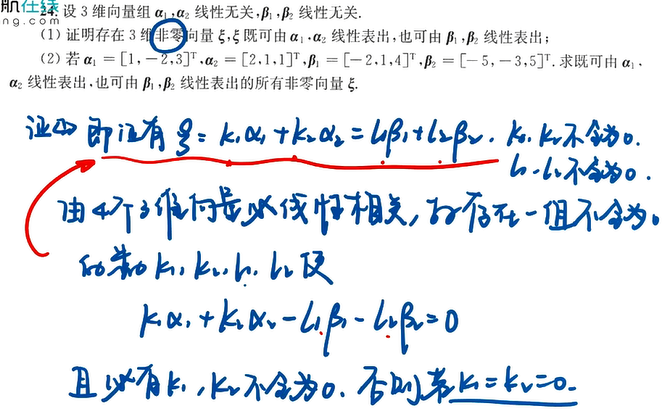 肌在线
ng.com
24. 设 3 维向量组 α₁,α₂ 线性无关,β₁,β₂ 线性无关.
(1) 证明存在 3 维非零向量 ξ,ξ 既可由 α₁,α₂ 线性表出,也可由 β₁,β₂ 线性表出;
(2) 若 α₁ = [1,−2,3]ᵀ,α₂ = [2,1,1]ᵀ,β₁ = [−2,1,4]ᵀ,β₂ = [−5,−3,5]ᵀ. 求既可由 α₁,
α₂ 线性表出,也可由 β₁,β₂ 线性表出的所有非零向量 ξ.
证(1) 即证有 ξ = k₁α₁+k₂α₂ = l₁β₁+l₂β₂. k₁.k₂不全为0.
l₁.l₂不全为0.
由4个3维向量必线性相关,故存在一组不全为0
的数 k₁.k₂.l₁.l₂ 使
k₁α₁+k₂α₂−l₁β₁−l₂β₂=0
且必有k₁,k₂不全为0. 否则若k₁=k₂=0.